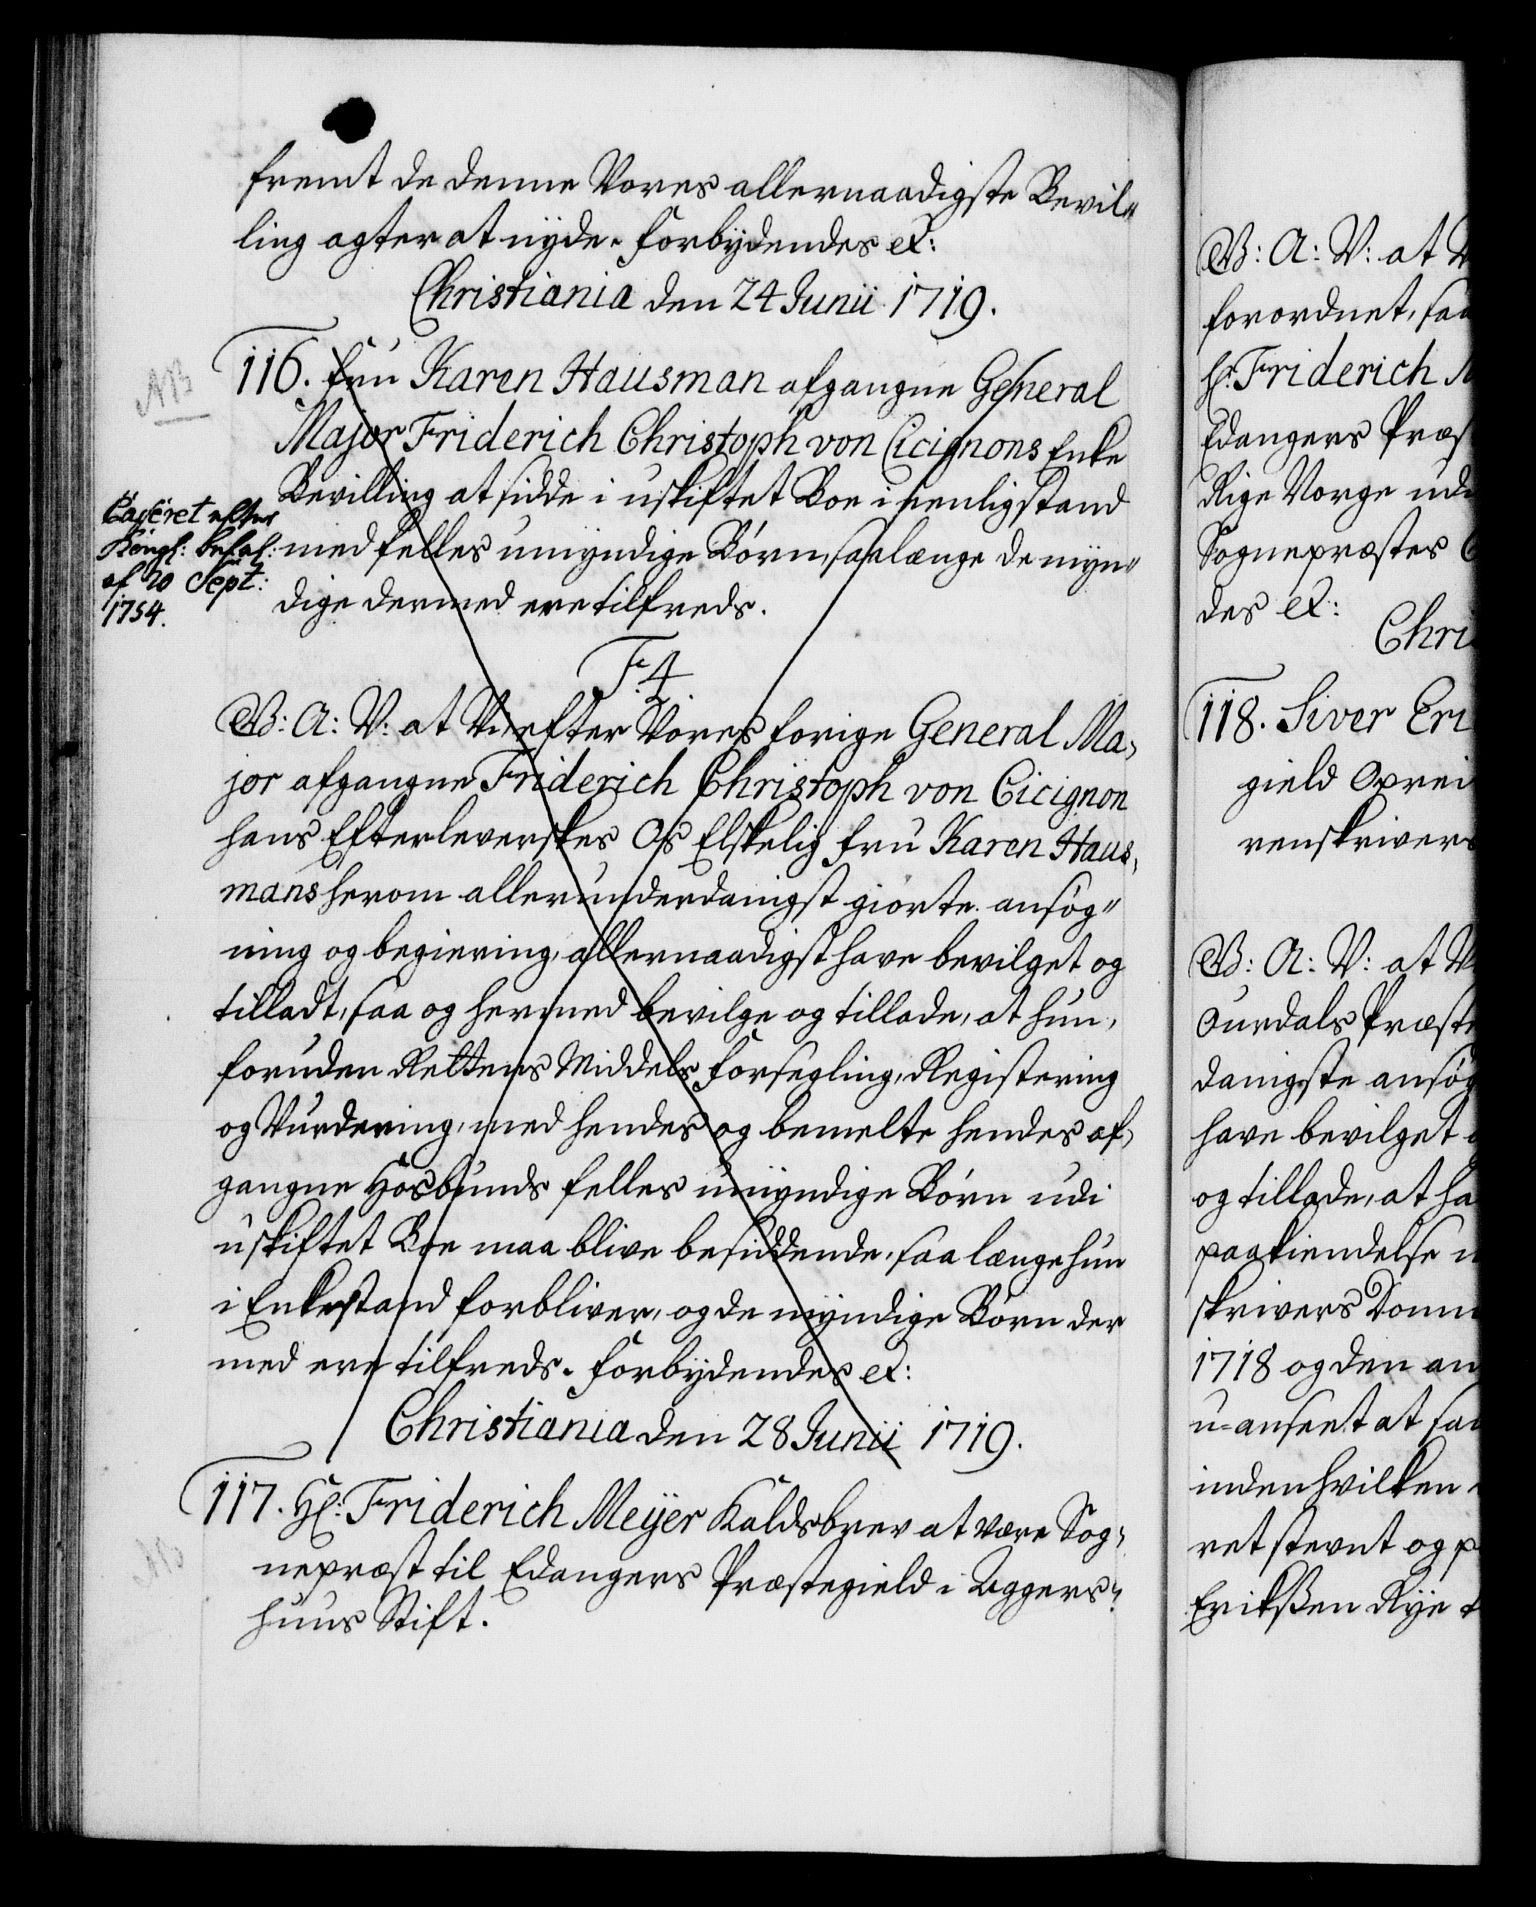 fremt de denne Vores allernaadigste Bevil-
ling agter at nyde. Forbydendes etc:
Christiania den 24 Junii 1719.
NB
116. Fru Karen Hausman afgangne General
Major Friderich Christoph von Cicignons Enke
Bevilling at sidde i uskiftet Boe i eenligstand
med felles umyndige Børn, saalænge de myn-
dige dermed ere tilfreds.
Casseret efter
Kongl: befal:
af 20 Sept:
1754.
F. 4
G. A: V: at Vi efter Vores forige General Ma-
jor afgangne Friderich Christoph von Cicignon
hans Efterleverskes Os Elskelig Fru Karen Haus-
mans herom allerunderdanigst giorte ansøg-
ning og begiering, allernaadigst have bevilget og
tilladt, saa og hermed bevilge og tillade, at hun,
foruden Rettens Middels Forsegling, Registering
og Vurdering, med hendes og bemelte hendes af-
gangne Hosbunds felles umyndige Børn udi
uskiftet Boe maa blive besiddende, saa længe hun
i Enkestand forbliver, og de myndige Børn der
med ere tilfreds. Forbydendes etc:
Christiania den 28 Junii 1719.
117. Hr: Friderich Meyer Kaldsbrev at være Sog-
nepræst til Edangers Præstegield i Aggers-
huus Stift.
G: A: V: at V
forordnet, saa
Hr: Friderich M
Edangers Præs
Rige Norge ud
Sognepræstes
des etc:
Chri
118. Siver Eri
gield Oprei
renskrivers
G: A: V: at V
Ourdals Præste
danigste ansøg
have bevilget o
og tillade, at ha
paakiendelse
skrivers Domm
1718 og den an
u-anseet at saa
inden hvilken
ret stevnt og p
Erikßen Rye